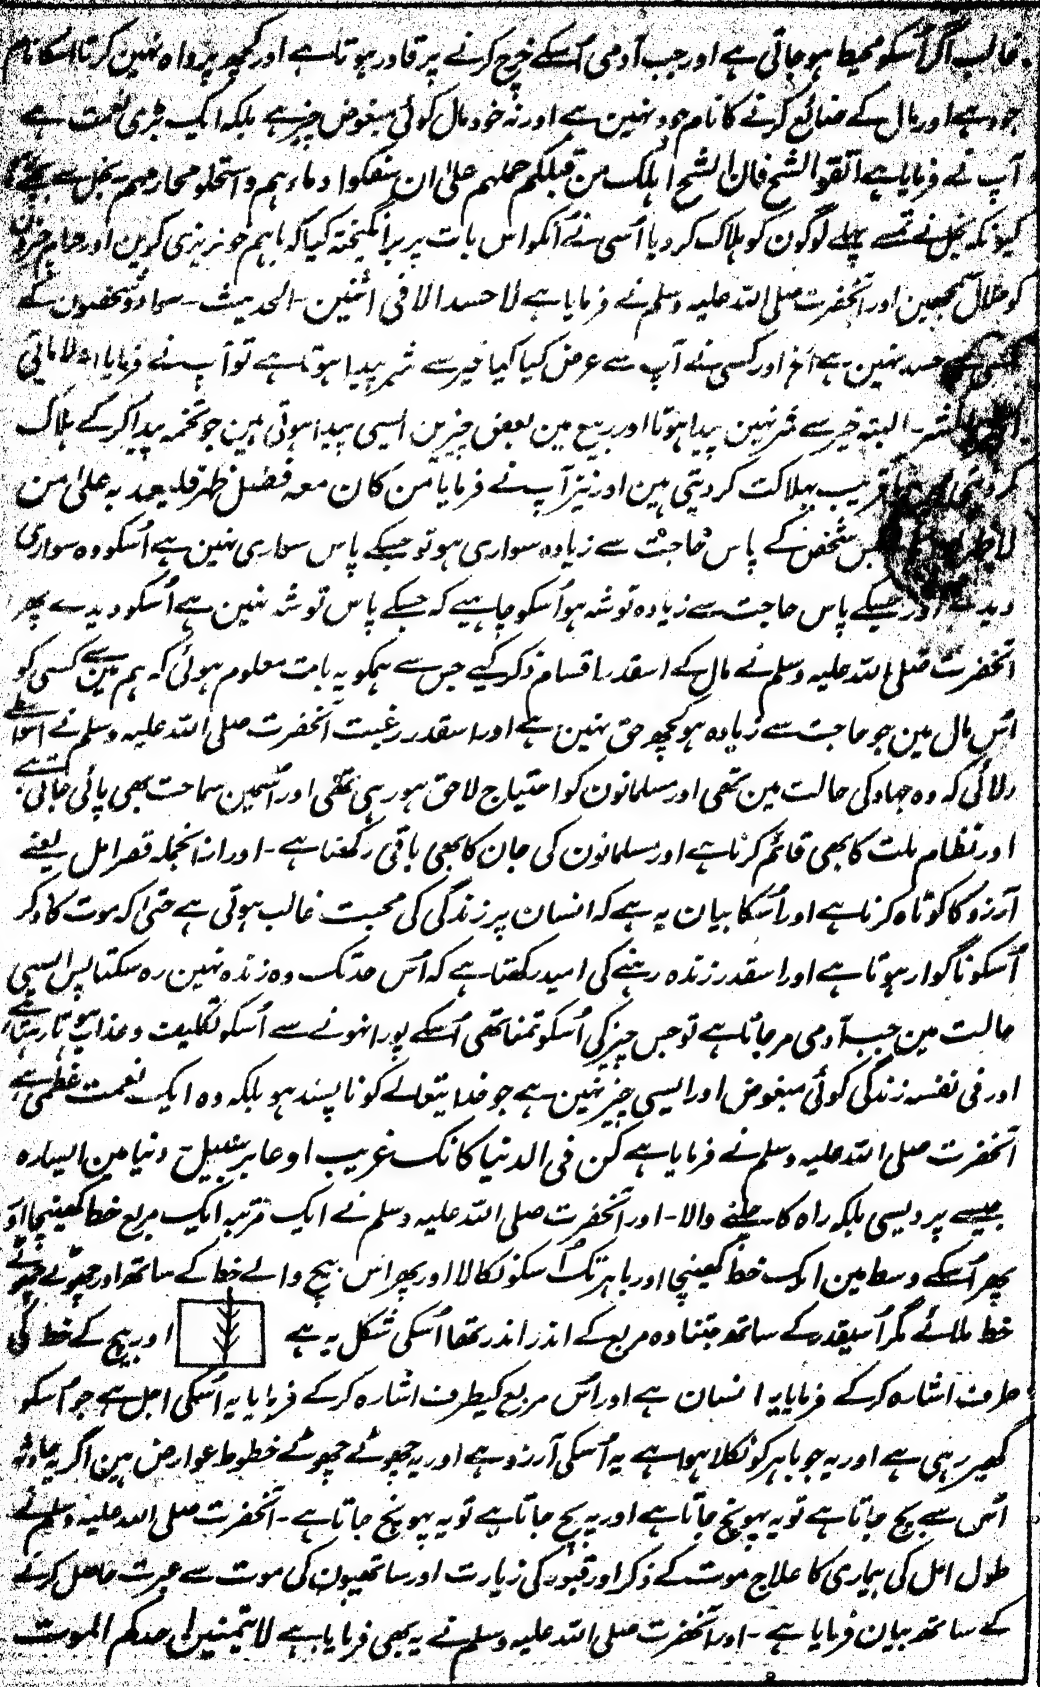 غالب آکر اُسکو محیط ہو جاتی ہے اور جب آدمی اُسکے خرچ کرنے پر قادر ہوتا ہے اور کچھ پرواہ نہین کرتا اسکا نام
جود ہے اور مال کے ضائع کرنے کا نام جود نہین ہے اور نہ خود مال کوئی مبغوض چیز ہے بلکہ ایک بڑی نعمت ہے
آپ نے فرمایا ہے اتقوا الشح فان الشح اہلک من قبلکم حملہم علیٰ ان سفکوا دماءہم واستحلو محارمہم بخل سے بچو
کیونکہ بخل نے تمسے پہلے لوگون کو ہلاک کردیا اُسی نے اُنکو اس بات پر برانگیختہ کیا کہ باہم خونریزی کرین اور حرام چیزون
کو حلال سمجھین اور آنحضرت صلی اللہ علیہ وسلم نے فرمایا ہے لا حسد الا فی اثنین۔ الحدیث۔ سوا دو شخصون کے
کسی سے حسد نہین ہے الخ اور کسی نے آپ سے عرض کیا کیا خیر سے شر پیدا ہوتا ہے تو آپ نے فرمایا انہ لا یاتی
الخیر بالشر۔ البتہ خیر سے شر نہین پیدا ہوتا اور ربیع مین بعض چیزین ایسی پیدا ہوتی ہین جو تخمہ پیدا کرکے ہلاک
کردیتی ہین یا قریب بہلاکت کردیتی ہین اور نیز آپ نے فرمایا من کان معہ فضل ظہر فلیعد بہ علیٰ من
لا ظہر لہ جس شخص کے پاس حاجت سے زیادہ سواری ہو تو جسکے پاس سواری نہین ہے اُسکو وہ سواری
دیدے اور جسکے پاس حاجت سے زیادہ توشہ ہو اُسکو چاہیے کہ جسکے پاس توشہ نہین ہے اُسکو دیدے پھر
آنحضرت صلی اللہ علیہ وسلم نے مال کے اسقدر اقسام ذکر کیے جس سے ہمکو یہ بات معلوم ہوئی کہ ہم مین سے کسی کو
اُس مال مین جو حاجت سے زیادہ ہو کچھ حق نہین ہے اور اسقدر رغبت آنحضرت صلی اللہ علیہ وسلم نے اسواسطے
دلائی کہ وہ جہاد کی حالت مین تھی اور مسلمانون کو احتیاج لاحق ہو رہی تھی اور اُسمین سماحت بھی پائی جاتی ہے
اور نظام ملت کا بھی قائم کرنا ہے اور مسلمانون کی جان کا بھی باقی رکھنا ہے۔ اور ازانجملہ قصر امل یعنے
آرزو کا کوتاہ کرنا ہے اور اُسکا بیان یہ ہے کہ انسان پر زندگی کی محبت غالب ہوتی ہے حتیٰ کہ موت کا ذکر
اُسکو ناگوار ہوتا ہے اور اسقدر زندہ رہنے کی امید رکھتا ہے کہ اُس حد تک وہ زندہ نہین رہ سکتا پس ایسی
حالت مین جب آدمی مر جاتا ہے تو جس چیز کی اُسکو تمنا تھی اُسکے پورا نہونے سے اُسکو تکلیف و عذاب ہوتا رہتا ہے
اور فی نفسہ زندگی کوئی مبغوض اور ایسی چیز نہین ہے جو خدایتعالے کو ناپسند ہو بلکہ وہ ایک نعمت عظمیٰ ہے
آنحضرت صلی اللہ علیہ وسلم نے فرمایا ہے کن فی الدنیا کانک غریب او عابر سبیل۔ دنیا مین ایسا رہ
جیسے پردیسی بلکہ راہ کا چلنے والا۔ اور آنحضرت صلی اللہ علیہ وسلم نے ایک مرتبہ ایک مربع خط کھینچا اور
پھر اُسکے وسط مین ایک خط کھینچا اور باہر تک اُسکو نکالا اور پھر اس بیچ والے خط کے ساتھ اور چھوٹے چھوٹے
خط ملائے مگر اُسیقدر کے ساتھ جتنا وہ مربع کے اندر اندر تھا اُسکی شکل یہ ہے اور بیچ کے خط کی
طرف اشارہ کرکے فرمایا یہ انسان ہے اور اُس مربع کیطرف اشارہ کرکے فرمایا یہ اُسکی اجل ہے جو اُسکو
گھیر رہی ہے اور یہ جو باہر کو نکلا ہوا ہے یہ اُسکی آرزو ہے اور یہ چھوٹے چھوٹے خطوط عوارض ہین اگر یہ حادثہ
اُس سے بچ جاتا ہے تو یہ پہونچ جاتا ہے اور یہ بچ جاتا ہے تو یہ پہونچ جاتا ہے۔ آنحضرت صلی اللہ علیہ وسلم نے
طول امل کی بیماری کا علاج موت کے ذکر اور قبور کی زیارت اور ساتھیون کی موت سے عبرت حاصل کرنے
کے ساتھ بیان فرمایا ہے۔ اور آنحضرت صلی اللہ علیہ وسلم نے یہ بھی فرمایا ہے لا یتمنین احدکم الموت